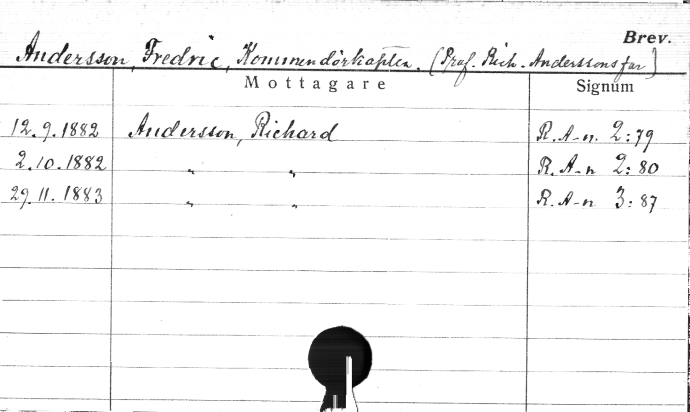 Brev.
Andersson, Fredric, Kommendörkapten. (Prof. Rich. Anderssons far)
Mottagare Signum
12.9.1882 Andersson, Richard R. A-n. 2:79
2.10.1882 " " R. A-n 2:80
29.11.1883 " " R. A-n 3:87